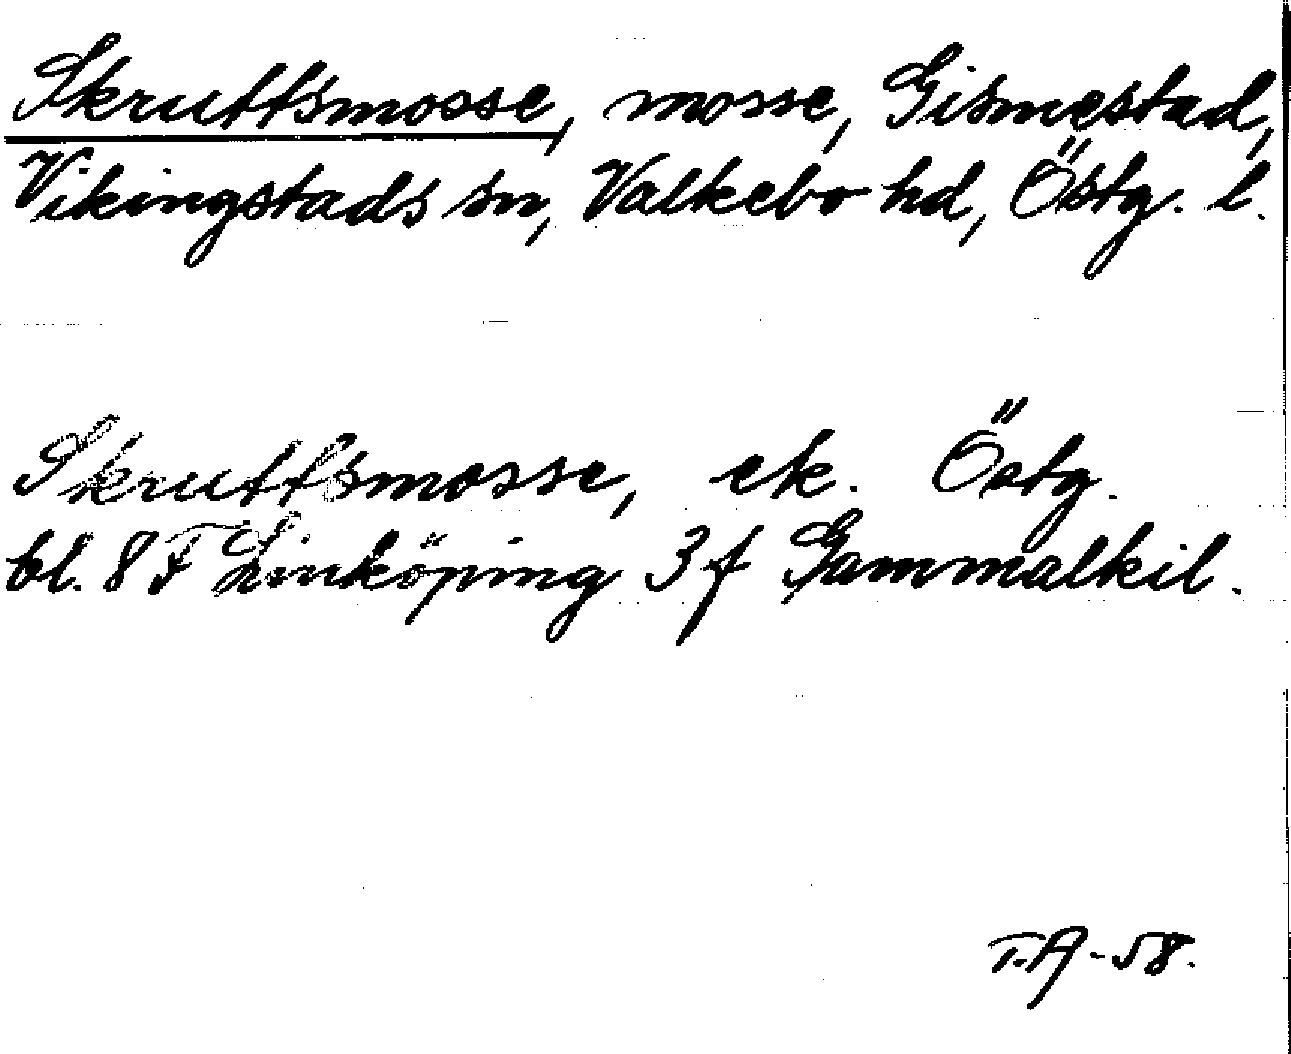 Skruttsmosse, mosse, Gismestad,
Vikingstads sn, Valkebo hd, Östg. l.
Skruttsmosse, ek. Östg.
bl. 8 F Linköping 3 f Gammalkil.
T.A -58.